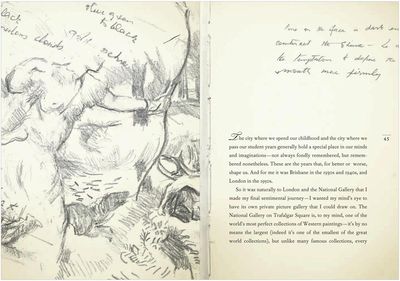 black
clouds
ochre
blue green
to black
continued the
the temptation to define the
mouth more firmly
The city where we spend our childhood and the city where we
pass our student years generally hold a special place in our minds
and imaginations—not always fondly remembered, but remem-
bered nonetheless. These are the years that, for better or worse,
shape us. And for me it was Brisbane in the 1930s and 1940s, and
London in the 1950s.
So it was naturally to London and the National Gallery that I
made my final sentimental journey—I wanted my mind's eye to
have its own private picture gallery that I could draw on. The
National Gallery on Trafalgar Square is, to my mind, one of the
world's most perfect collections of Western paintings—it's by no
means the largest (indeed it's one of the smallest of the great
world collections), but unlike many famous collections, every
45